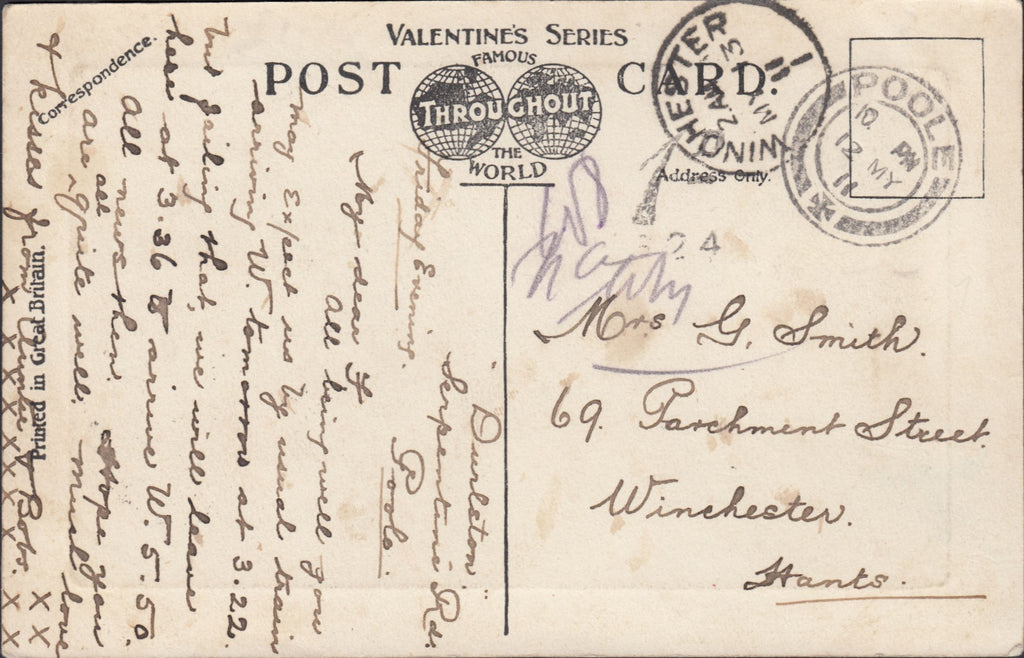 VALENTINE'S SERIES
FAMOUS
POST CARD.
THROUGHOUT
THE
WORLD
Correspondence.
Address Only.
Printed in Great Britain.
WINCHESTER
2. AM
MY 13
11
POOLE
10 PM
12 MY
11
24
Mrs G. Smith.
69. Parchment Street.
Winchester.
Hants.
"Durlston"
Serpentine Rd.
Poole.
Friday Evening.
My dear F
All being well you
may expect us by usual train
arriving W. tomorrow at 3.22.
but failing that, we will leave
here at 3.36 & arrive W. 5.50
All news then. Hope you
are all quite well. Much love
& kisses from Bobs.
X X X X X X X X